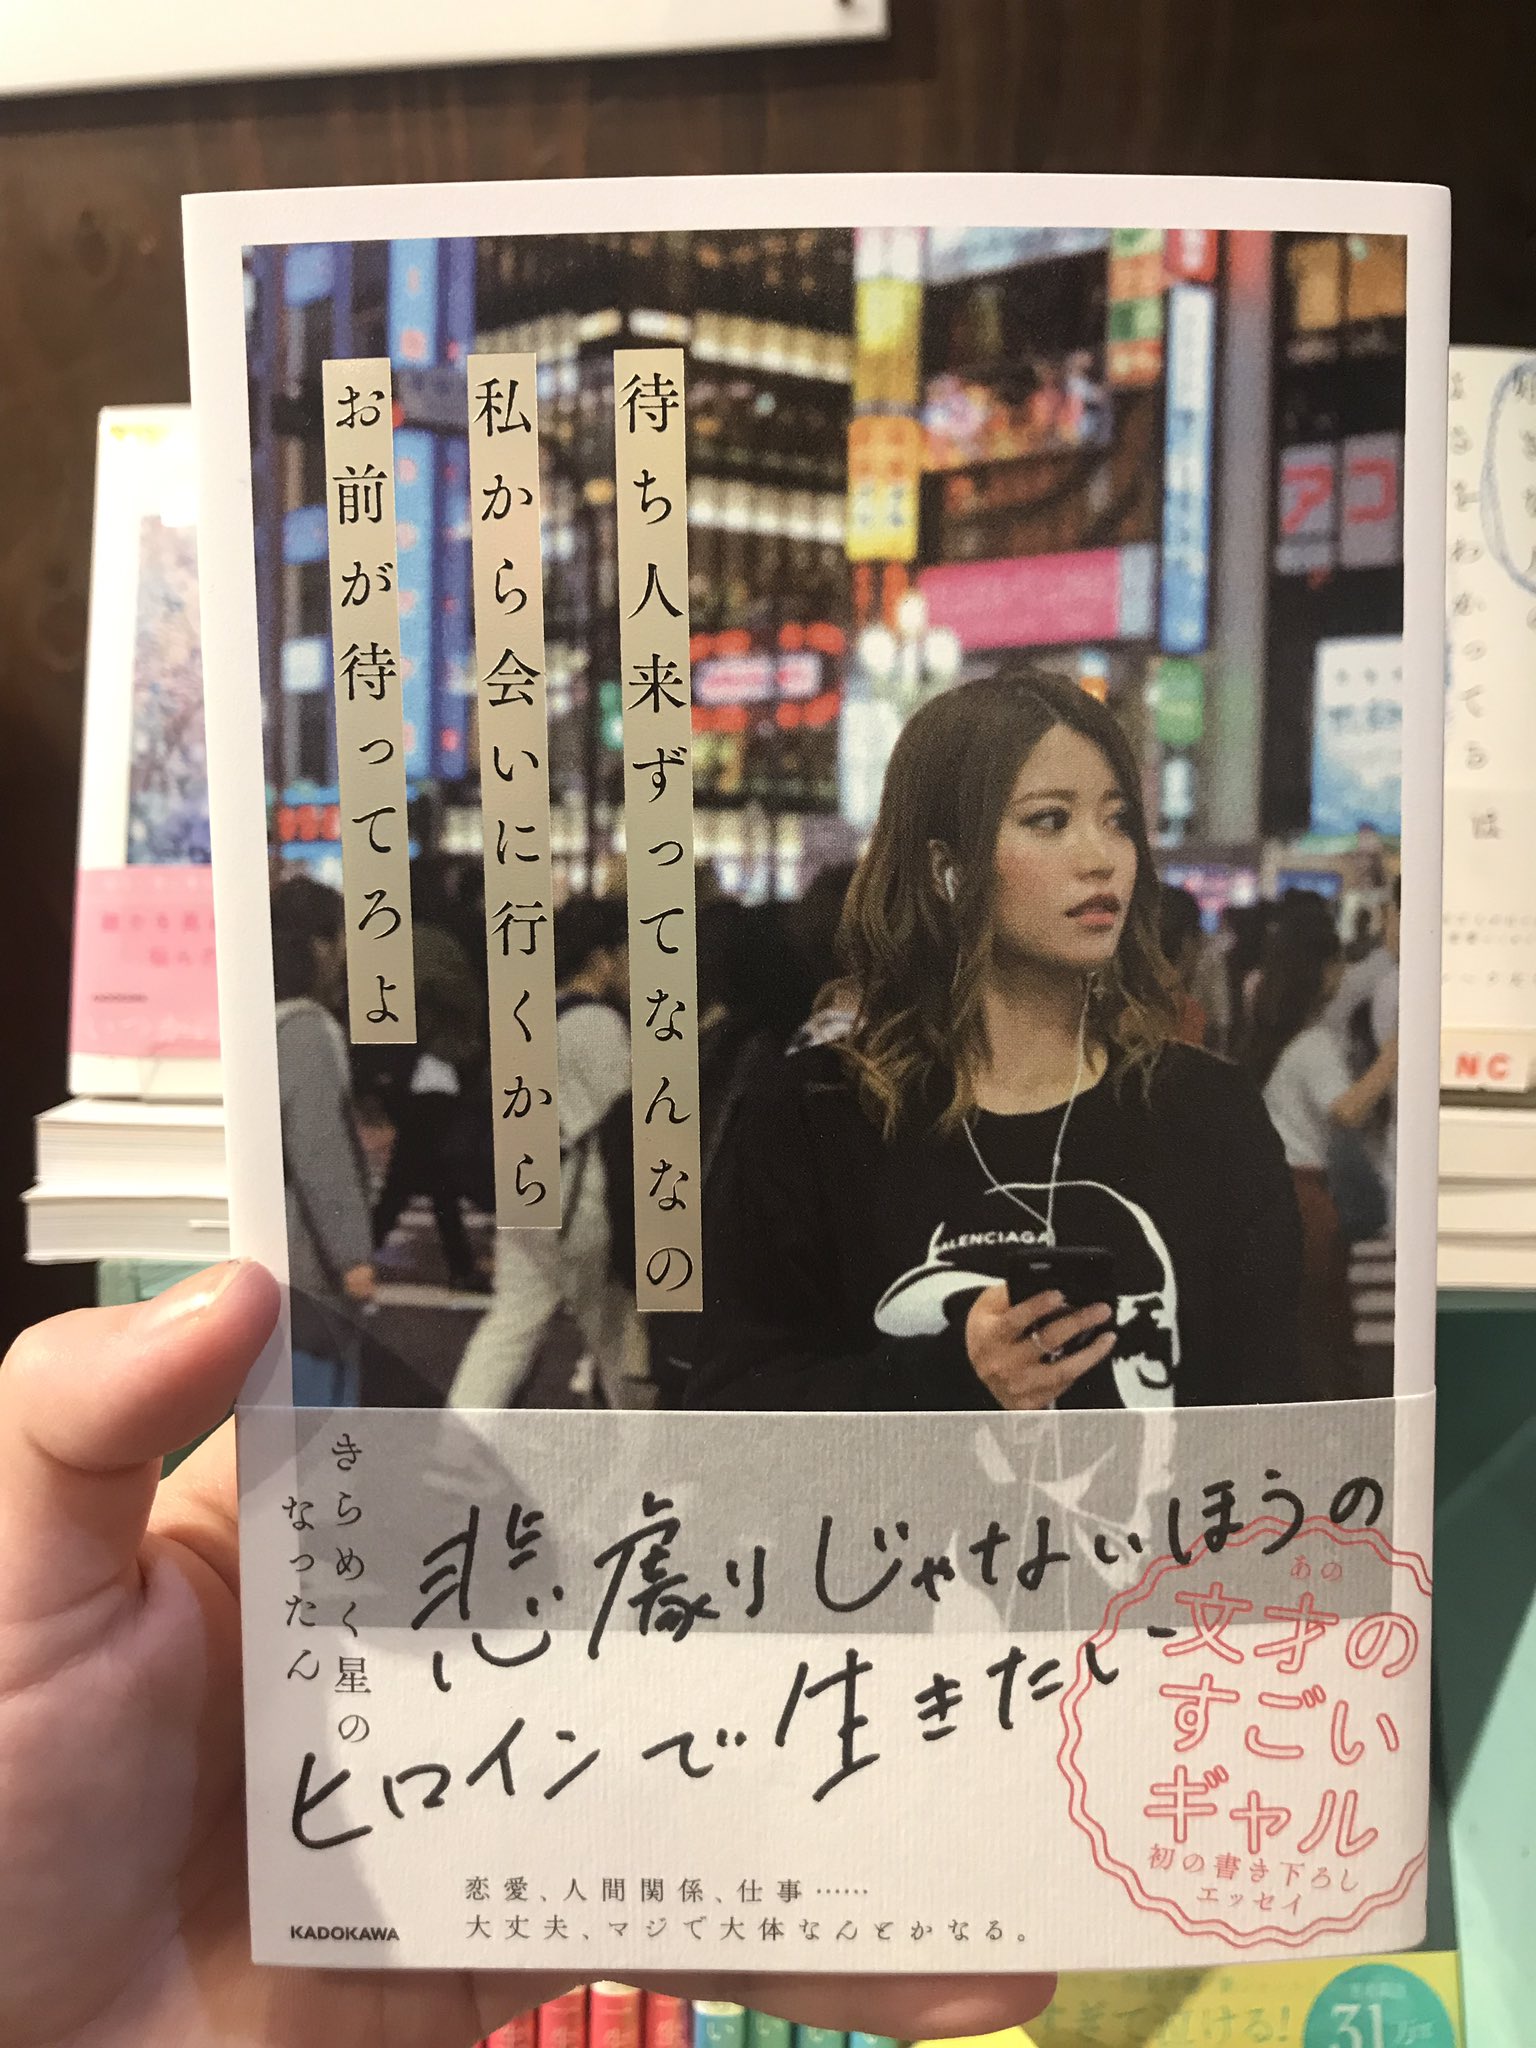 待ち人来ずってなんなの
私から会いに行くから
お前が待ってろよ
アコ
BALENCIAGA
きらめく星の
なったん
悲劇じゃないほうの
ヒロインで生きたい
あの
文才の
すごい
ギャル
初の書き下ろし
エッセイ
恋愛、人間関係、仕事……
大丈夫、マジで大体なんとかなる。
KADOKAWA
NC
すぎて泣ける!
31万部